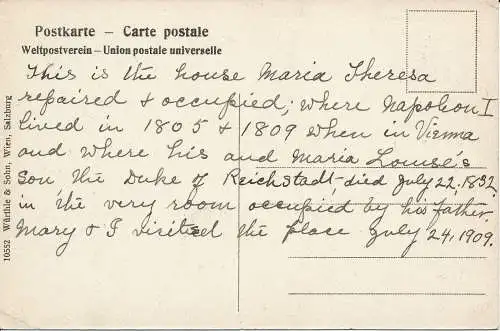 Postkarte – Carte postale
Weltpostverein – Union postale universelle
This is the house Maria Theresa
repaired & occupied; where Napoleon I
lived in 1805 & 1809 when in Vienna
and where his and Maria Louise's
son the Duke of Reichstadt–died July 22, 1832.
in the very room occupied by his father.
Mary & I visited the place July 24, 1909.
10552 Würthle & Sohn, Wien, Salzburg